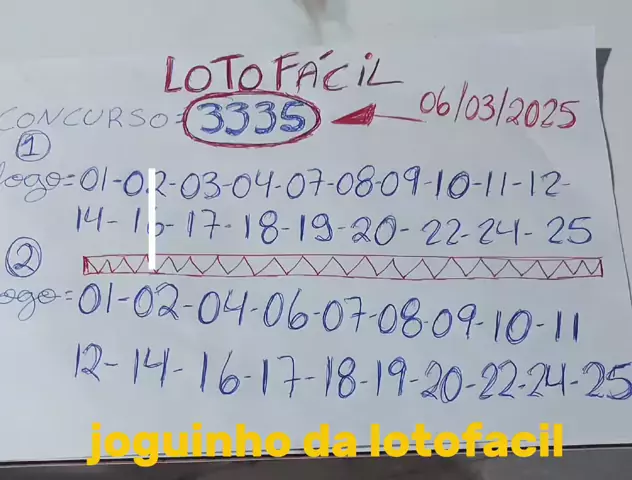 LOTOFÁCIL
CONCURSO= 3335 06/03/2025
1
Jogo=01-02-03-04-07-08-09-10-11-12-
14-16-17-18-19-20-22-24-25
2
ogo=01-02-04-06-07-08-09-10-11
12-14-16-17-18-19-20-22-24-25
joguinho da lotofacil